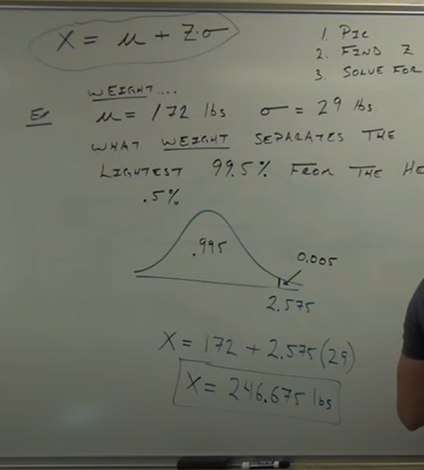 X = μ + z·σ
1. PIC
2. FIND Z
3. SOLVE FOR
WEIGHT....
Ex μ = 172 lbs σ = 29 lbs.
WHAT WEIGHT SEPARATES THE
LIGHTEST 99.5% FROM THE HE
.5%
.995
0.005
2.575
X = 172 + 2.575(29)
X = 246.675 lbs